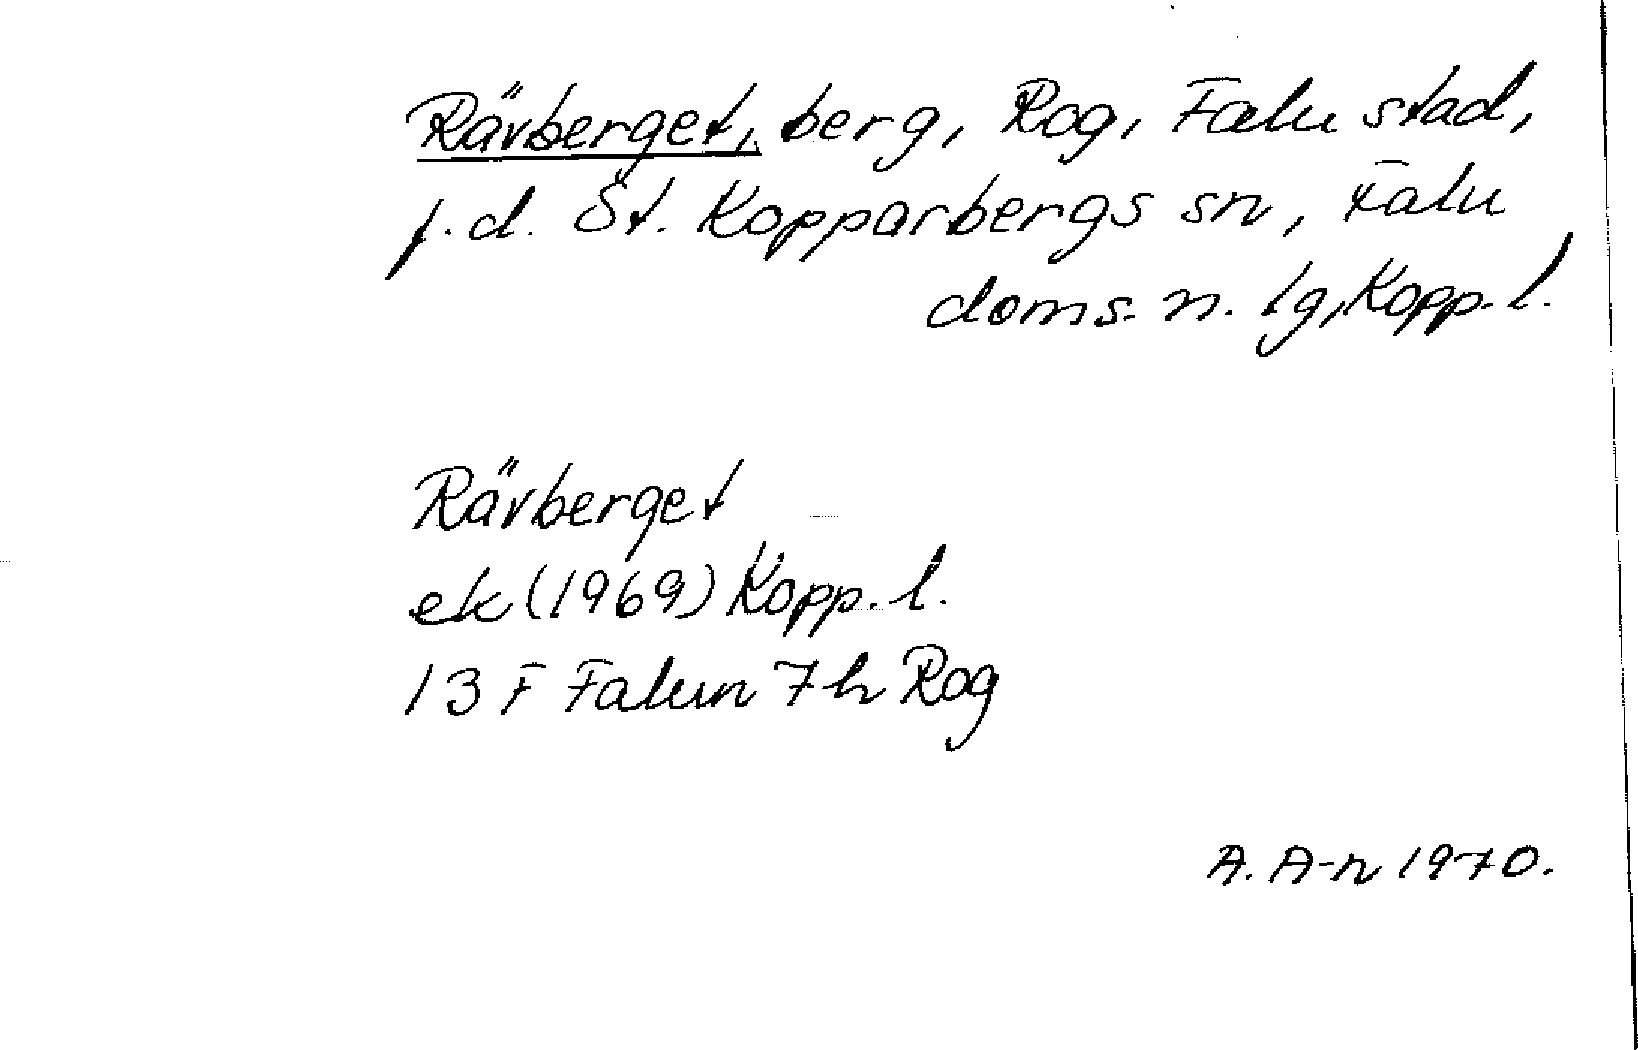 Rävberget, berg, Rog, Falu stad,
f.d. St. Kopparbergs sn, Falu
doms. n. tg, Kopp. l.
Rävberget
ek (1969) Kopp. l.
13 F Falun 7h Rog
A. A-n 1970.